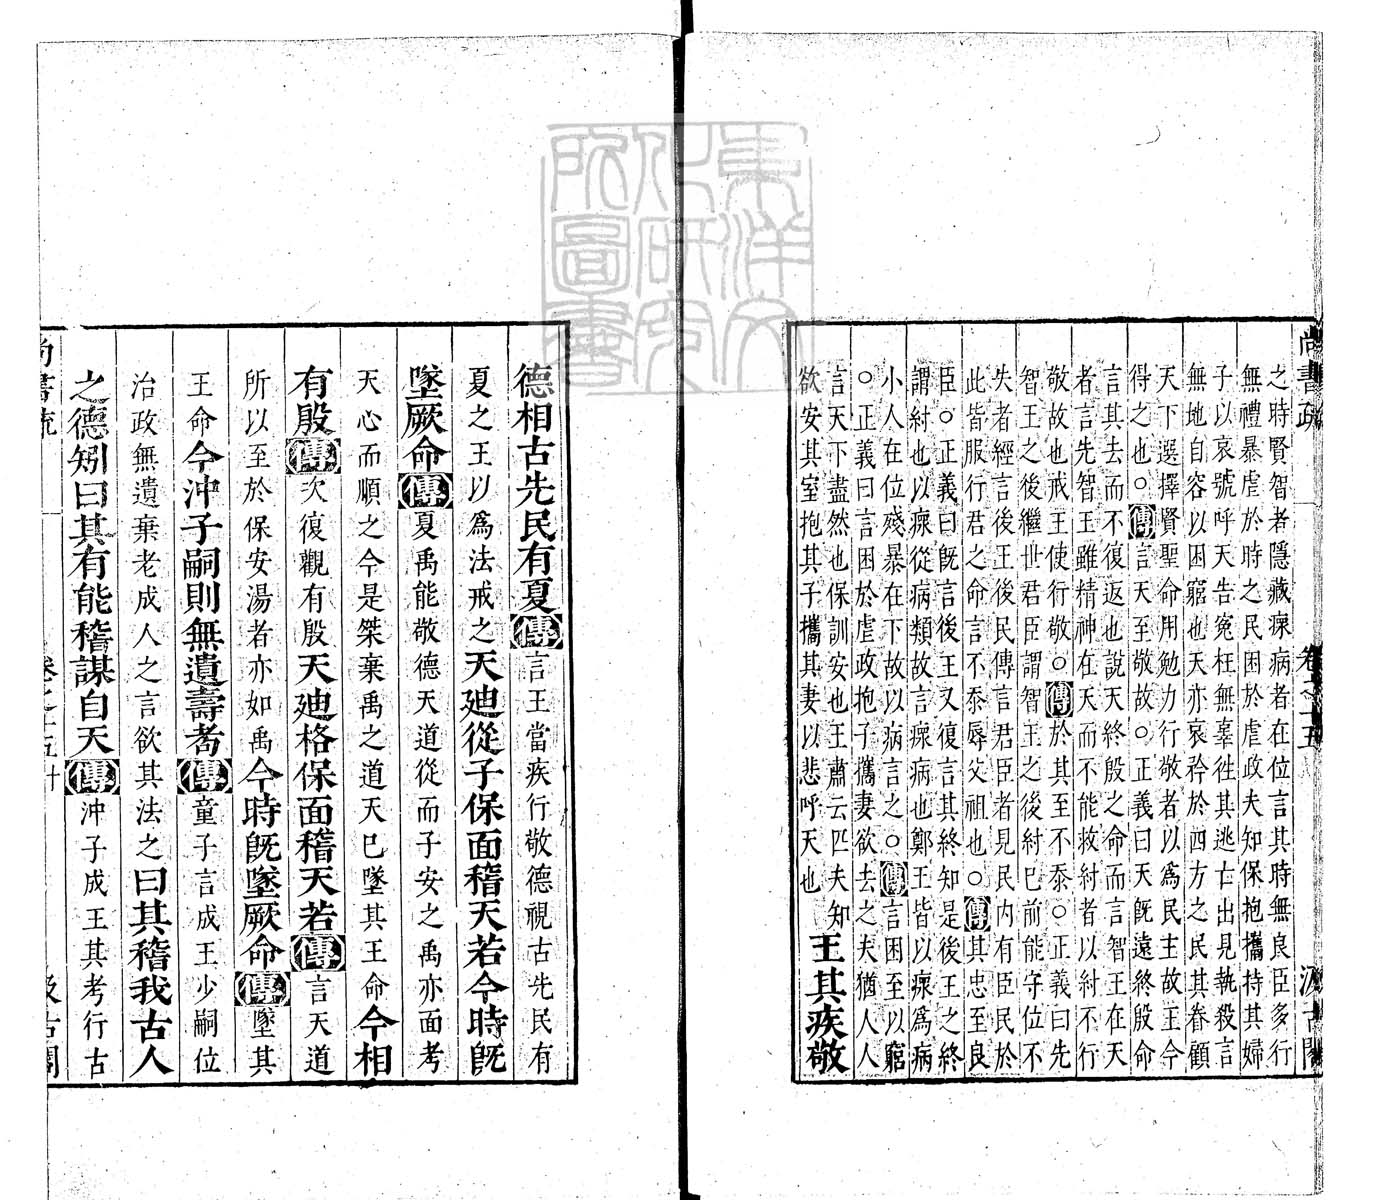 尚書疏 卷之十五 汲古閣
之時賢智者隱藏瘝病者在位言其時無良臣多行
無禮暴虐於時之民困於虐政夫知保抱攜持其婦
子以哀號呼天告冤枉無辜徃其逃亡出見執殺言
無地自容以困窮也天亦哀矜於四方之民其眷顧
天下選擇賢聖命用勉力行敬者以爲民主故王今
得之也○傳言天至敬故○正義曰天旣遠終殷命
言其去而不復返也說天終殷之命而言智王在天
者言先智王雖精神在天而不能救紂者以紂不行
敬故也戒王使行敬○傳於其至不忝○正義曰先
智王之後繼世君臣謂智王之後紂巳前能守位不
失者經言後王後民傳言君臣者見民内有臣民於
此皆服行君之命言不忝辱父祖也○傳其忠至良
臣○正義曰旣言後王又復言其終知是後王之終
謂紂也以瘝從病類故言瘝病也鄭王皆以瘝爲病
小人在位殘暴在下故以病言之○傳言困至以窮
○正義曰言困於虐政抱子攜妻欲去之夫猶人人
言天下盡然也保訓安也王肅云匹夫知
欲安其室抱其子攜其妻以悲呼天也
王其疾敬
德相古先民有夏傳言王當疾行敬德視古先民有
夏之王以爲法戒之天迪從子保面稽天若今時旣
墜厥命傳夏禹能敬德天道從而子安之禹亦面考
天心而順之今是桀棄禹之道天巳墜其王命今相
有殷傳次復觀有殷天迪格保面稽天若傳言天道
所以至於保安湯者亦如禹今時旣墜厥命傳墜其
王命今沖子嗣則無遺壽耉傳童子言成王少嗣位
治政無遺棄老成人之言欲其法之曰其稽我古人
之德矧曰其有能稽謀自天傳沖子成王其考行古
尚書疏 卷之十五 汲古閣
東洋文化研究所圖書